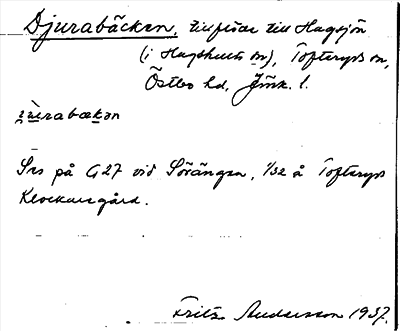 Djurabäcken, tillflöde till Hagsjön
(i Hagshults sn), Tofteryds sn,
Östbo hd, Jönk. l.
jurabækən
Ses på G27 vid Sörängen, 1/32 å Tofteryds
Klockaregård.
Fritz Andersson 1937.